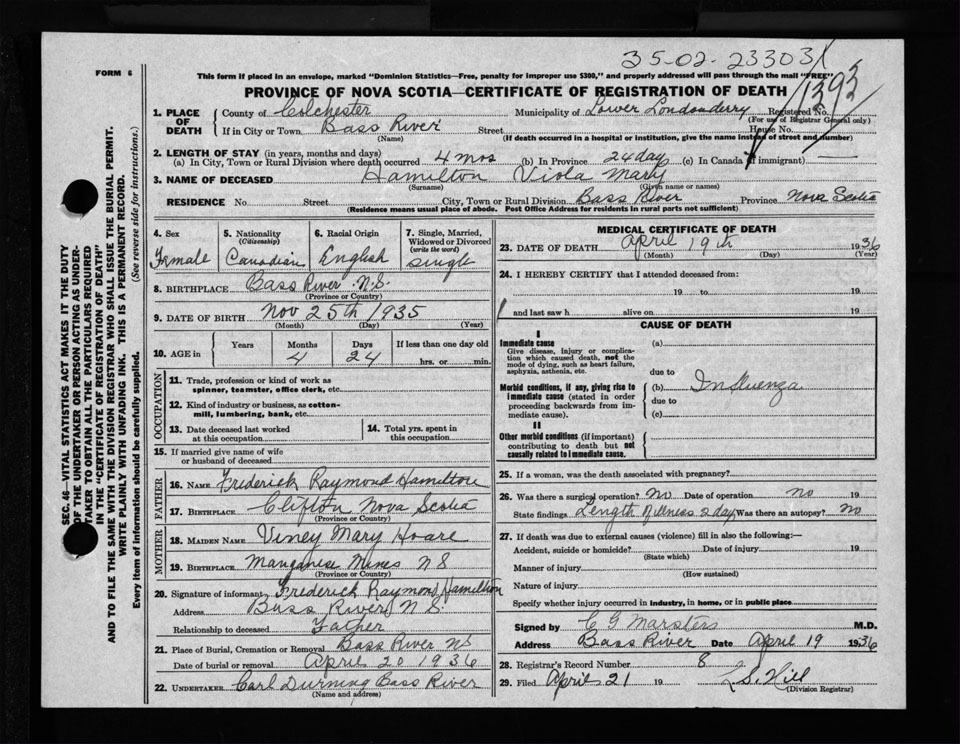 35-02-233031
FORM 6
This form if placed in an envelope, marked "Dominion Statistics—Free, penalty for improper use $300," and properly addressed will pass through the mail "FREE"
1393
PROVINCE OF NOVA SCOTIA—CERTIFICATE OF REGISTRATION OF DEATH
SEC. 46—VITAL STATISTICS ACT MAKES IT THE DUTY
OF THE UNDERTAKER OR PERSON ACTING AS UNDER-
TAKER TO OBTAIN ALL THE PARTICULARS REQUIRED
IN THE "CERTIFICATE OF REGISTRATION OF DEATH"
AND TO FILE THE SAME WITH THE DIVISION REGISTRAR WHO SHALL ISSUE THE BURIAL PERMIT.
WRITE PLAINLY WITH UNFADING INK. THIS IS A PERMANENT RECORD.
Every item of information should be carefully supplied. (See reverse side for instructions.)
1. PLACE OF DEATH County of Colchester Municipality of Lower Londonderry Registered No.
(For use of Registrar General only)
If in City or Town Bass River Street House No.
(Name) (If death occurred in a hospital or institution, give the name instead of street and number)
2. LENGTH OF STAY (in years, months and days)
(a) In City, Town or Rural Division where death occurred 4 mos (b) In Province 24 day (c) In Canada (if immigrant) —
3. NAME OF DECEASED Hamilton Viola Mary
(Surname) (Given name or names)
RESIDENCE No. Street City, Town or Rural Division Bass River Province Nova Scotia
(Residence means usual place of abode. Post Office Address for residents in rural parts not sufficient)
4. Sex 5. Nationality (Citizenship) 6. Racial Origin 7. Single, Married, Widowed or Divorced (write the word)
Female Canadian English single
8. BIRTHPLACE Bass River N.S.
(Province or Country)
9. DATE OF BIRTH Nov 25th 1935
(Month) (Day) (Year)
10. AGE in Years Months Days If less than one day old
4 24 hrs. or min.
OCCUPATION
11. Trade, profession or kind of work as
spinner, teamster, office clerk, etc.
12. Kind of industry or business, as cotton-
mill, lumbering, bank, etc.
13. Date deceased last worked
at this occupation
14. Total yrs. spent in
this occupation
15. If married give name of wife
or husband of deceased
FATHER
16. NAME Frederick Raymond Hamilton
17. BIRTHPLACE Clifton Nova Scotia
(Province or Country)
MOTHER
18. MAIDEN NAME Viney Mary Hoare
19. BIRTHPLACE Manganese Mines N S
(Province or Country)
20. Signature of informant Frederick Raymond Hamilton
Address Bass River N.S.
Relationship to deceased Father
21. Place of Burial, Cremation or Removal Bass River NS
Date of burial or removal April 20 1936
22. UNDERTAKER Carl Durning Bass River
(Name and address)
MEDICAL CERTIFICATE OF DEATH
23. DATE OF DEATH April 19th 1936
(Month) (Day) (Year)
24. I HEREBY CERTIFY that I attended deceased from:
19 to 19
and last saw h alive on 19
CAUSE OF DEATH
I
Immediate cause
Give disease, injury or complica-
tion which caused death, not the
mode of dying, such as heart failure,
asphyxia, asthenia, etc.
(a)
due to
Morbid conditions, if any, giving rise to
immediate cause (stated in order
proceeding backwards from im-
mediate cause).
(b) Influenza
due to
(c)
II
Other morbid conditions (if important)
contributing to death but not
causally related to immediate cause.
25. If a woman, was the death associated with pregnancy?
26. Was there a surgical operation? No Date of operation no 19
State findings Length illness 2 day Was there an autopsy? No
27. If death was due to external causes (violence) fill in also the following:—
Accident, suicide or homicide? Date of injury 19
(State which)
Manner of injury
(How sustained)
Nature of injury
Specify whether injury occurred in industry, in home, or in public place
Signed by C G Marsters M.D.
Address Bass River Date April 19 1936
28. Registrar's Record Number 8
29. Filed April 21 19 L S. Hill
(Division Registrar)